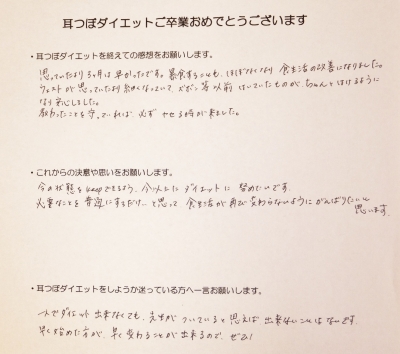 耳つぼダイエットご卒業おめでとうございます
・耳つぼダイエットを終えての感想をお願いします。
思っていたより3ヶ月は早かったです。暴食することも、ほぼなくなり 食生活の改善になりました。
ウェストが思っていたより細くなっていて、ズボン等以前はいていたものが、ちゃんとはけるように
なり安心しました。
教わったことを守っていれば、必ず やせる時が来ました。
・これからの決意や思いをお願いします。
今の状態をkeepできるよう、今以上に ダイエットに 努めたいです。
必要なことを普通にするだけ…と思って 食生活が再び変わらないようにがんばりたいと
思います。
・耳つぼダイエットをしようか迷っている方へ一言お願いします。
一人でダイエット出来なくても、先生がついていると思えば 出来ないことはないです。
早く始めた方が、早く変わることが出来るので、ぜひ!